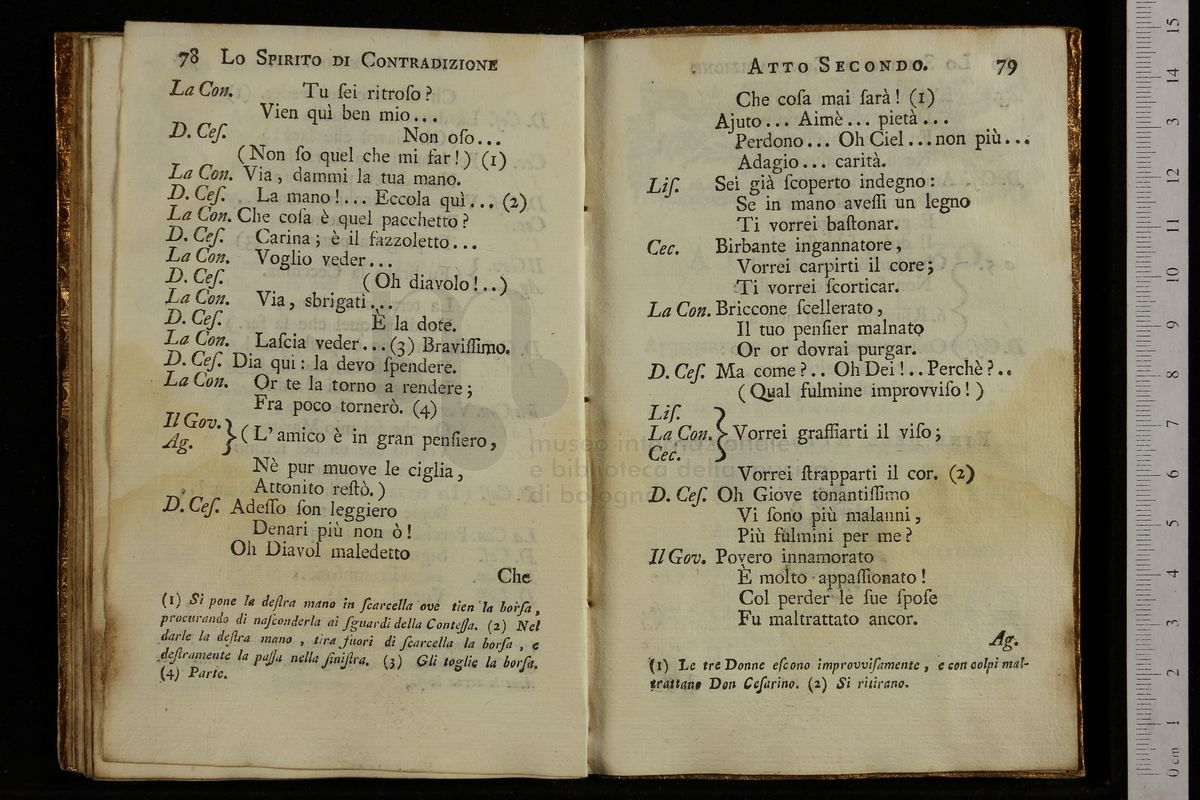 78 Lo Spirito di Contradizione
La Con. Tu ſei ritroſo?
Vien quì ben mio...
D. Ceſ. Non oſo...
(Non ſo quel che mi far!) (1)
La Con. Via, dammi la tua mano.
D. Ceſ. La mano!... Eccola quì... (2)
La Con. Che coſa è quel pacchetto?
D. Ceſ. Carina; è il fazzoletto...
La Con. Voglio veder...
D. Ceſ. (Oh diavolo!..)
La Con. Via, sbrigati...
D. Ceſ. È la dote.
La Con. Laſcia veder...(3) Braviſſimo.
D. Ceſ. Dia qui: la devo ſpendere.
La Con. Or te la torno a rendere;
Fra poco tornerò. (4)
Il Gov.
Ag. } (L'amico è in gran penſiero,
Nè pur muove le ciglia,
Attonito reſtò.)
D. Ceſ. Adeſſo ſon leggiero
Denari più non ò!
Oh Diavol maledetto
Che
(1) Si pone la deſtra mano in ſcarcella ove tien la borſa,
procurando di naſconderla ai ſguardi della Conteſſa. (2) Nel
darle la deſtra mano, tira fuori di ſcarcella la borſa, e
deſtramente la paſſa nella ſiniſtra. (3) Gli toglie la borſa.
(4) Parte.
Atto Secondo. 79
Che coſa mai ſarà! (1)
Ajuto... Aimè... pietà...
Perdono... Oh Ciel...non più...
Adagio... carità.
Liſ. Sei già ſcoperto indegno:
Se in mano aveſſi un legno
Ti vorrei baſtonar.
Cec. Birbante ingannatore,
Vorrei carpirti il core;
Ti vorrei ſcorticar.
La Con. Briccone ſcellerato,
Il tuo penſier malnato
Or or dovrai purgar.
D. Ceſ. Ma come?.. Oh Dei!..Perchè?..
(Qual fulmine improvviſo!)
Liſ.
La Con. } Vorrei graffiarti il viſo;
Cec.
Vorrei ſtrapparti il cor. (2)
D. Ceſ. Oh Giove tonantiſſimo
Vi ſono più malanni,
Più fulmini per me?
Il Gov. Povero innamorato
È molto appaſſionato!
Col perder le ſue ſpoſe
Fu maltrattato ancor.
Ag.
(1) Le tre Donne eſcono improvviſamente, e con colpi mal-
trattano Don Ceſarino. (2) Si ritirano.
museo internazionale
e biblioteca della
di bologna
0 cm 1 2 3 4 5 6 7 8 9 10 11 12 13 14 15